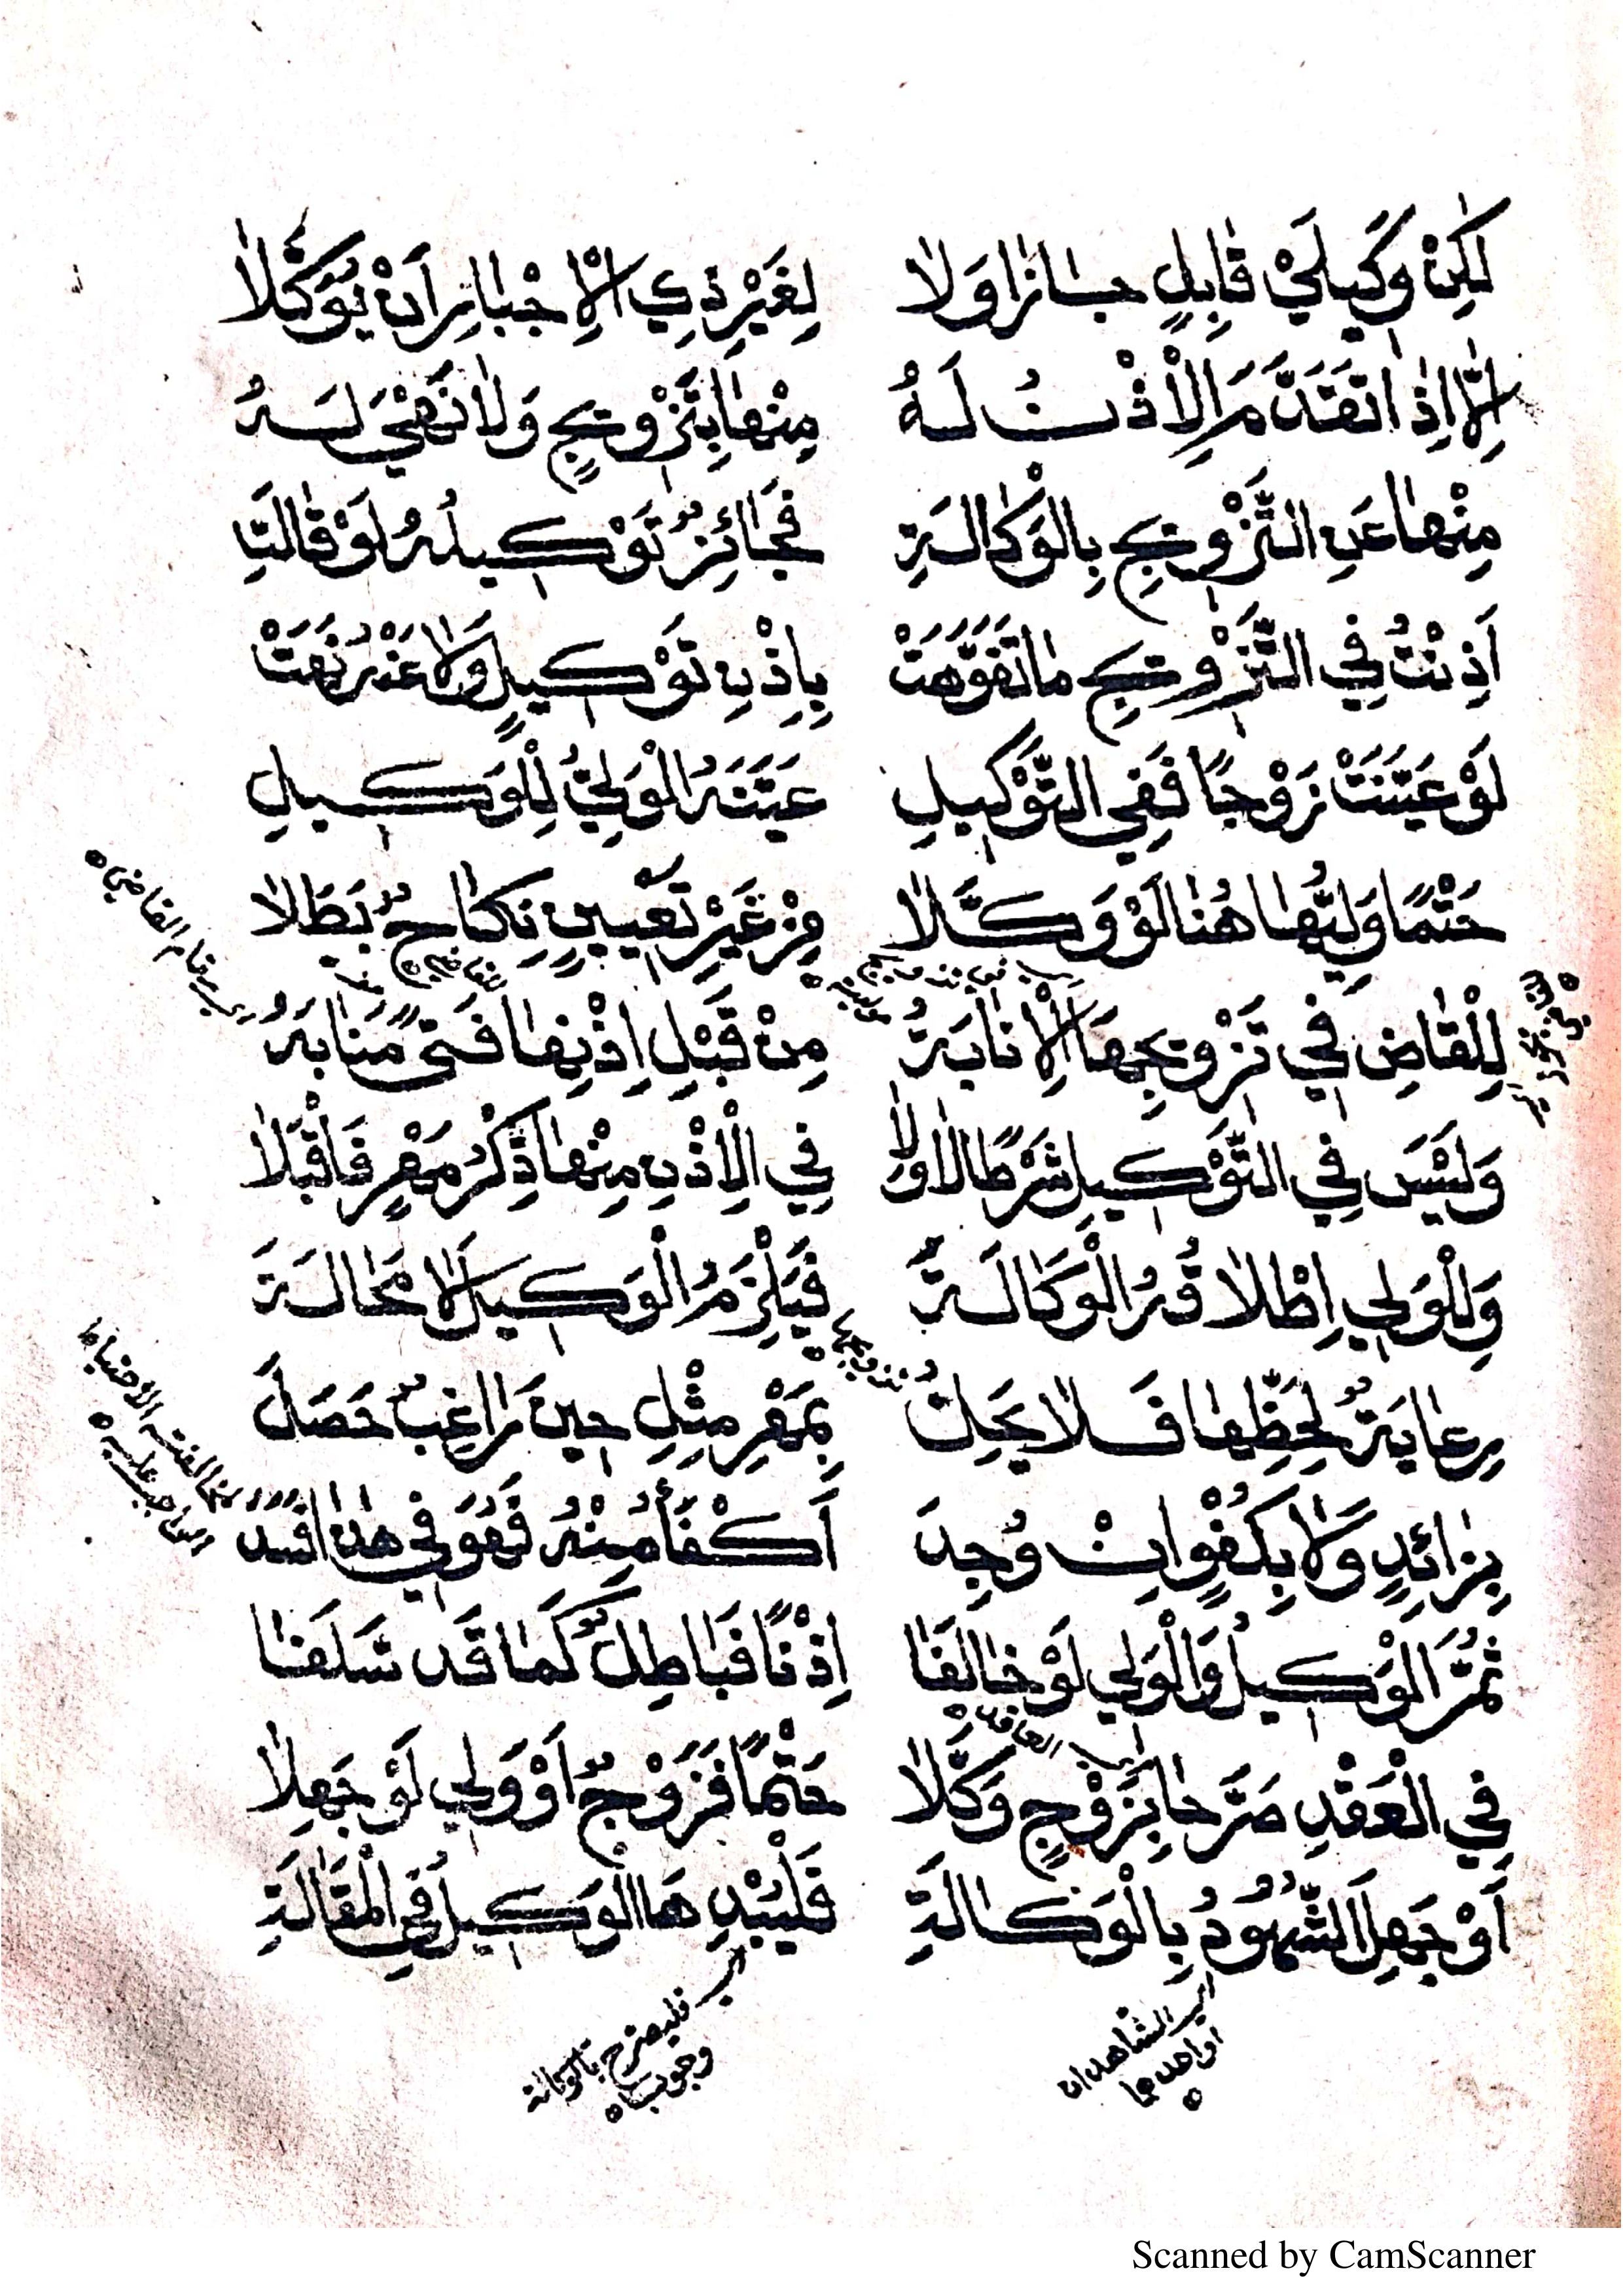 لٰكِنْ وَكِيلَيْ قٰابِلٍ جٰازٰا وَلٰا لِغَيْرِ ذِي الْإِجْبٰارِ اَنْ يُوَكِّلاٰ
اِلّٰا اِذٰا تَقَدَّمَ الْاِذْنُ لَهُ مِنْهٰا بِتَزْوِيجٍ وَلاٰ نَهْيَ لَهُ
مِنْهٰا عَنِ التَّزْوِيجِ بِالْوَكٰالَةِ فَجٰائِزٌ تَوْكِيلُهُ لَوْ قٰالَتِ
اَذِنْتُ فِي التَّزْوِيجِ مٰا تَفَوَّهَتْ بِاِذْنِ تَوْكِيلٍ وَلاٰ عَنْهُ نَهَتْ
لَوْ عَيَّنَتْ زَوْجًا فَفِي التَّوْكِيلِ عَيَّنَهُ الْوَلِيُّ لِلْوَكِيلِ
حَتْمًا وَلِيُّهٰا هُنٰا لَوْ وَكَّلاٰ مِنْ غَيْرِ تَعْيِينٍ نِكٰاحٌ بَطَلاٰ
لِلْقٰاضِ فِي تَزْوِيجِهَا الْاِنٰابَةُ مِنْ قَبْلِ اِذْنِهٰا فَتًى مَنٰابَهُ
وَلَيْسَ فِي التَّوْكِيلِ شَرْطًا لاٰ وَلاٰ فِي الْاِذْنِ مِنْهٰا ذِكْرُ مَهْرٍ فَاقْبَلاٰ
وَلِلْوَلِي اِطْلاٰقُهُ الْوَكَالَةَ فَيَلْزَمُ الْوَكِيلَ لاٰ مَحٰالَةَ
رِعٰايَةٌ لِحَظِّهٰا فَلاٰ يَحِلْ بِمَهْرِ مِثْلٍ حِينَ رٰاغِبٌ حَصَلْ
بِزٰائِدٍ وَلاٰ بِكُفْوٍ اِنْ وُجِدَ اَكْفَأُ مِنْهُ فَهُوَ فِي هٰذٰا فَسَدَ
ثُمَّ الْوَكِيلُ وَالْوَلِي لَوْ خٰالَفَا اِذْنًا فَبٰاطِلٌ كَمٰا قَدْ سَلَفٰا
فِي الْعَقْدِ صَرَّحٰا بِزَوْجٍ وَكَّلاٰ حَتْمًا فَزَوْجٌ اَوْ وَلِي لَوْ جَهِلاٰ
اَوْ جَهِلَ الشُّهُودُ بِالْوَكٰالَةِ فَلْيُبْدِهَا الْوَكِيلُ فِي الْمَقٰالَةِ
اي الشاهدان
او احدهما
اي فليصرح بالوكالة
وجوبا
Scanned by CamScanner